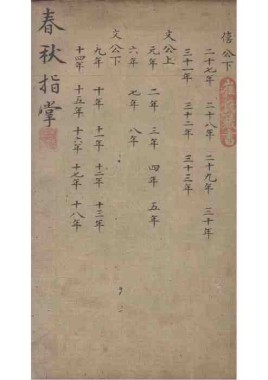 僖公下
二十七年 二十八年 二十九年 三十年
三十一年 三十二年 三十三年
文公上
元年 二年 三年 四年 五年
六年 七年 八年
文公下
九年 十年 十一年 十二年 十三年
十四年 十五年 十六年 十七年 十八年
春秋指掌